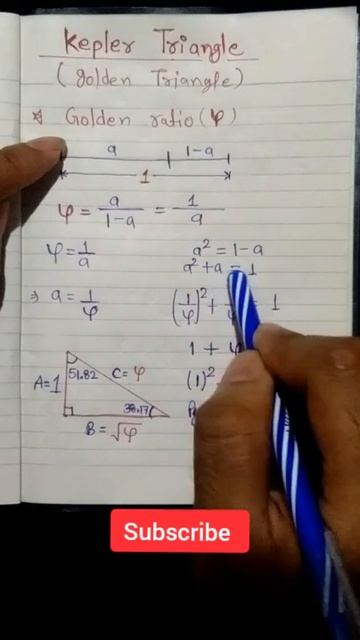 Kepler Triangle
(Golden Triangle)
* Golden ratio (φ)
a 1-a
1
φ = a/(1-a) = 1/a
φ = 1/a
a² = 1-a
a² + a = 1
⇒ a = 1/φ
(1/φ)² + = 1
1 + φ
A=1
51.82
C=φ
38.17
(1)²
B = √φ
Subscribe